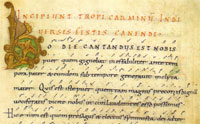 INCIPIUNT TROPI CARMINU INDI
VERSIS FESTIS CANENDI
HODIE CANTANDUS EST NOBIS
puer quem gignebat ineffabiliter ante tem
pora pater & eundem sub tempore generauit inclita
mater. Quis est iste puer quem tam magnis preconiis dignum
uociferatis dicite nobis ut conlaudatores esse possimus
Hic enim est quem presagus & electus